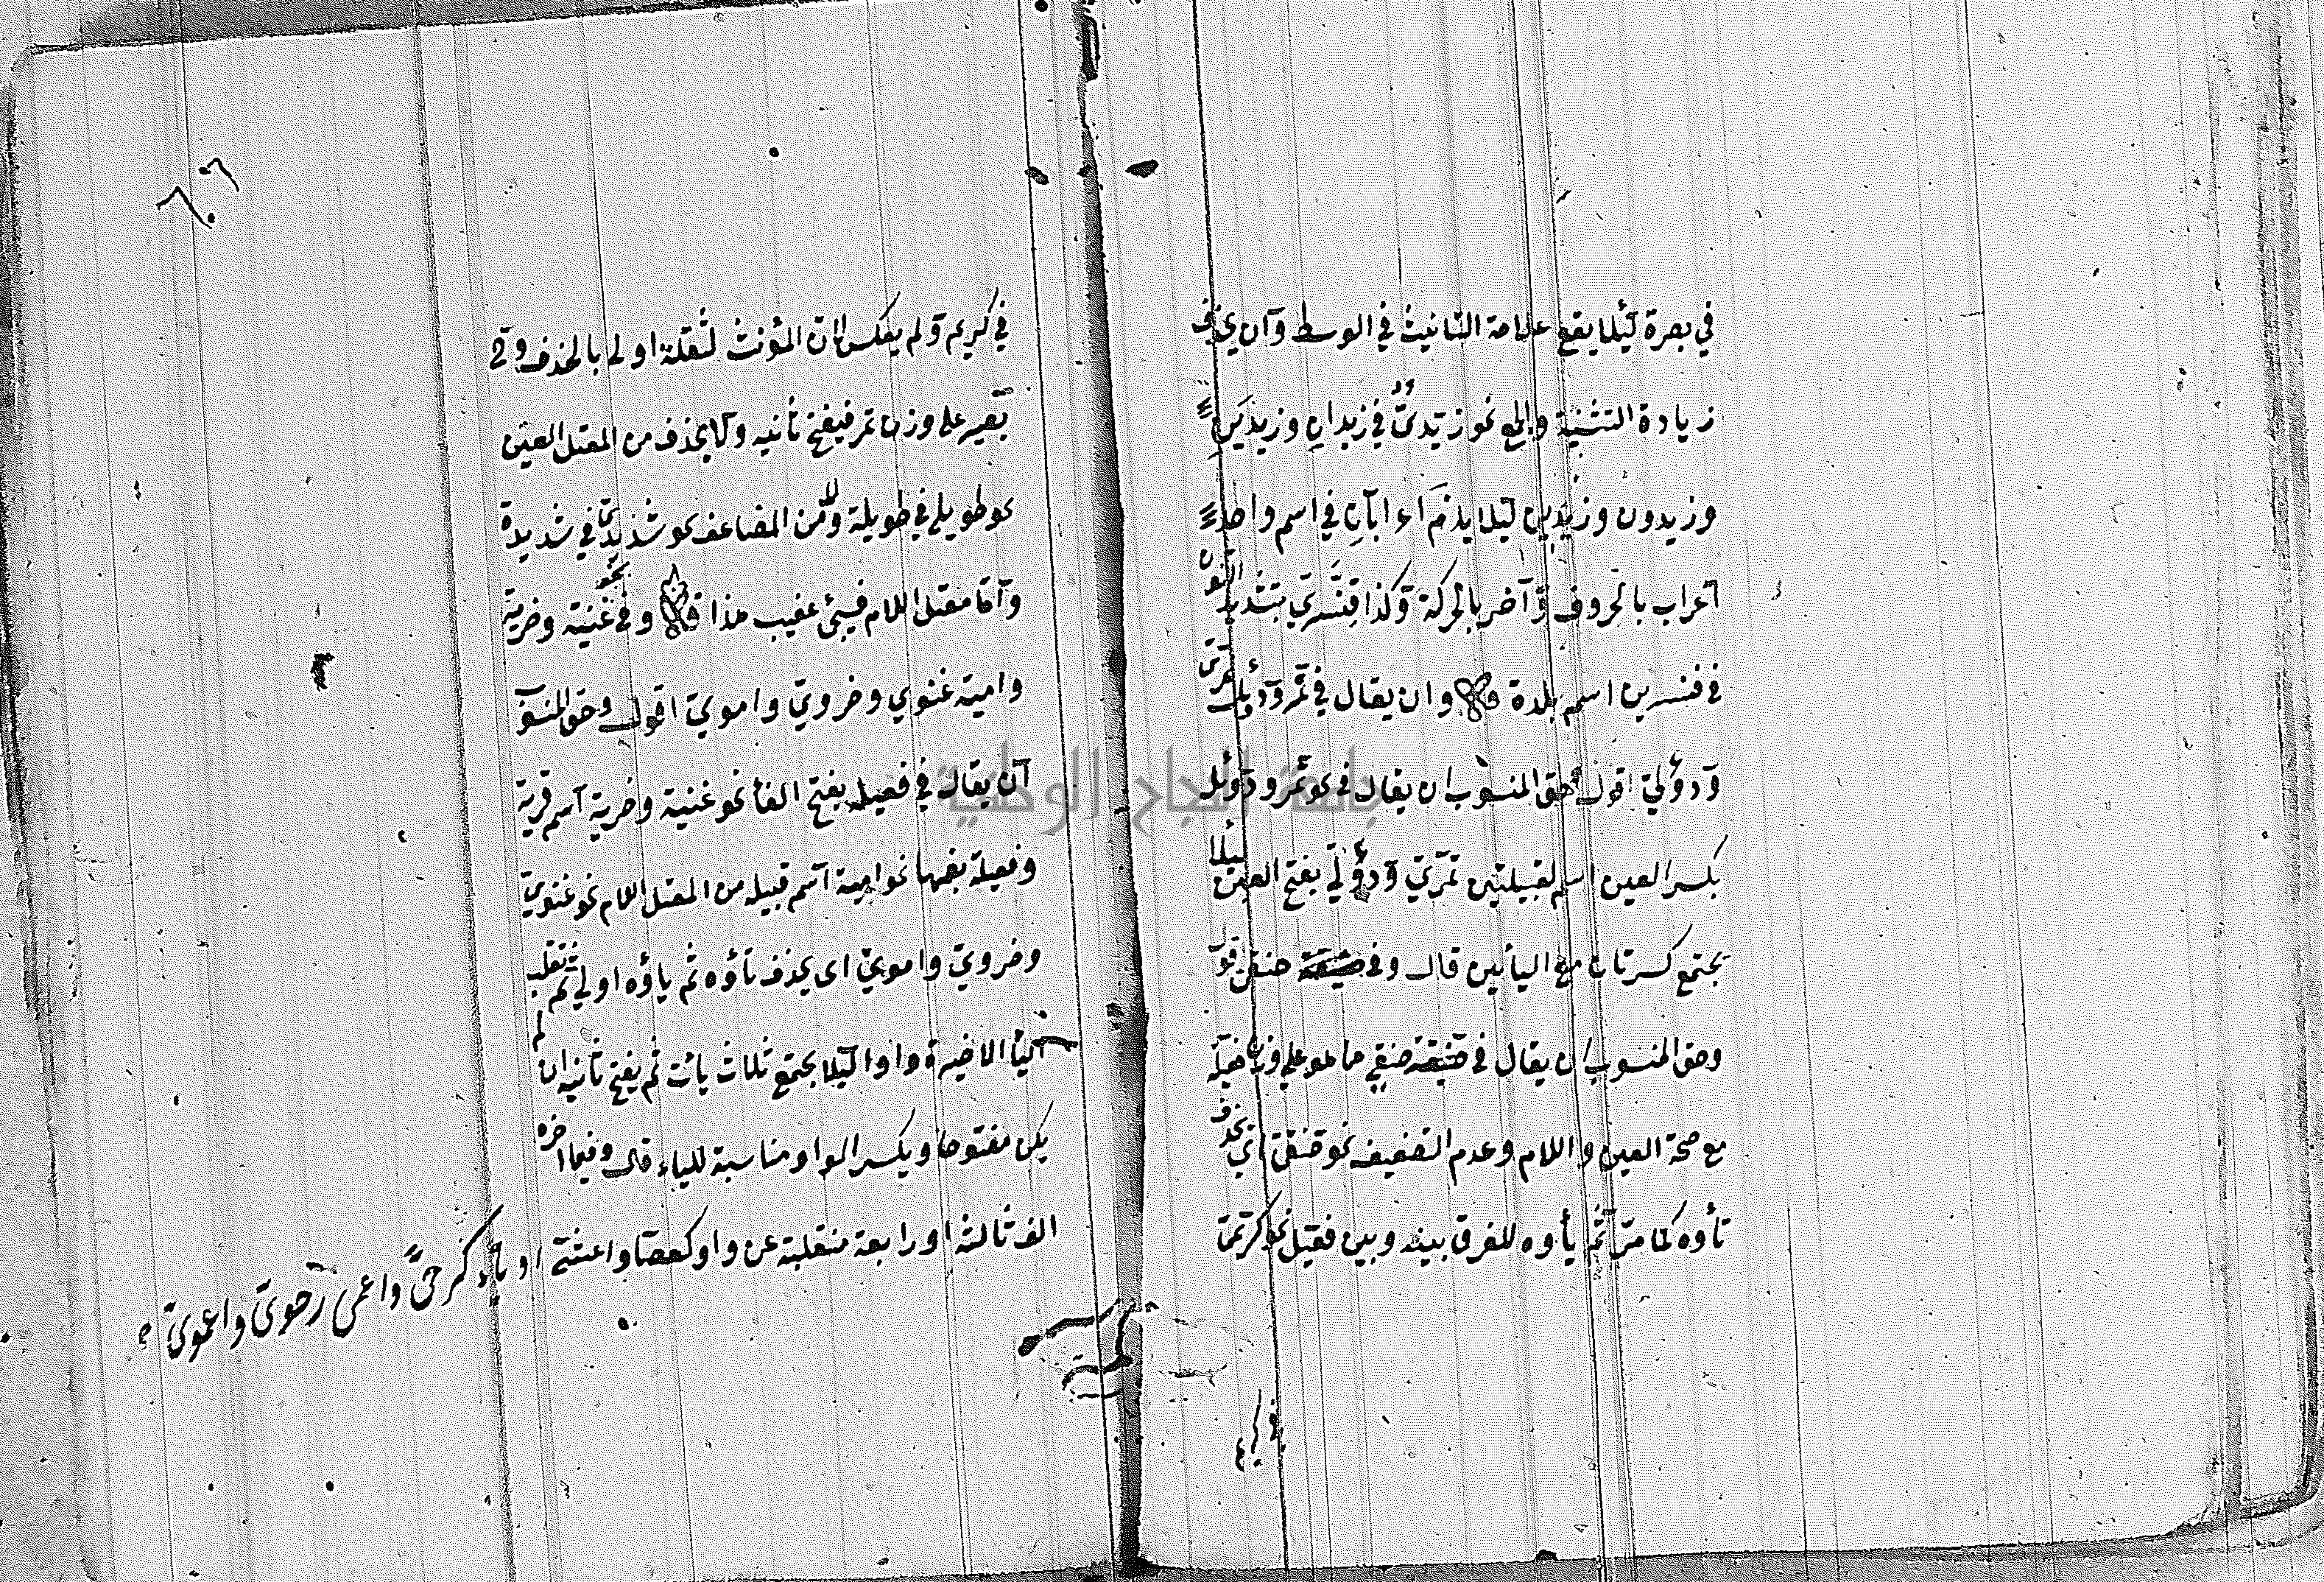 في بصرة لئلا يقع علامة التانيث في الوسط وان يحذف
زيادة التثنية والجمع نحو زيديّ في زيدان وزيدين
وزيدون وزيدين لئلا يلزم اعرابان في اسم واحد
اعراب بالحروف وآخر بالحركة وكذا قنسري بتشديد النون
في قنسرين اسم بلدة قال وان يقال في نمر ودؤل نمري
ودؤلي اقول حق المنسوب ان يقال في نحو نمر ودؤل
بكسر العين اسم لقبيلتين نمري ودؤلي بفتح العين لئلا
يجتمع كسرتان مع اليائين قال وفي حنيفة حنفي اقول
وحق المنسوب ان يقال في حنيفة حنفي مما هو على وزن فعيلة
مع صحة العين واللام وعدم التضعيف نحو حنفي اي يحذف
تاؤه كما مر ثم ياؤه للفرق بينه وبين فعيل نحو كريمي
في كريم
٦٠
في كريم ولم يعكس لان المؤنث لثقلة اولى بالحذف
يصير على وزن نمر فيفتح ثانيه ولا يحذف من المعتل العين
نحو طويلي في طويلة ولا من المضاعف نحو شديدي في شديدة
واما معتل اللام فيجئ عقيب هذا قال وفي نحو غنية وضرية
وامية غنوي وضروي واموي اقول وحق المنسوب
ان يقال في فعيلة بفتح الفأ نحو غنية وضرية اسم قرية
وفعيلة بضمها نحو امية اسم قبيلة من المعتل اللام نحو غنوي
وضروي واموي اى يحذف تاؤه ثم ياؤه اولى ثم تقلب
اليأ الاخيرة واوا لئلا يجتمع ثلاث يائت ثم يفتح ثانيه ان لم
يكن مفتوحا ويكسر الواو مناسبة للياء قال وفيما آخره
الف ثالثة او رابعة منقلبة عن واو كعصا واعشى او ياء كرحى واعمى رحوي واعموي